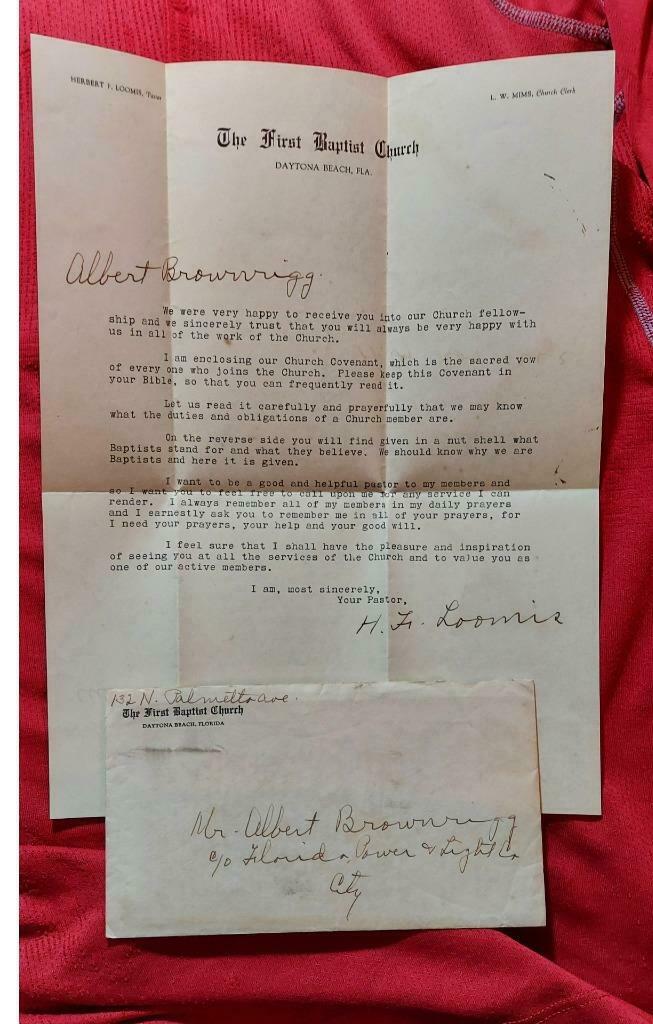 HERBERT F. LOOMIS, Pastor
L. W. MIMS, Church Clerk
The First Baptist Church
DAYTONA BEACH, FLA.
Albert Brownrigg.
We were very happy to receive you into our Church fellow-
ship and we sincerely trust that you will always be very happy with
us in all of the work of the Church.
I am enclosing our Church Covenant, which is the sacred vow
of every one who joins the Church. Please keep this Covenant in
your Bible, so that you can frequently read it.
Let us read it carefully and prayerfully that we may know
what the duties and obligations of a Church member are.
On the reverse side you will find given in a nut shell what
Baptists stand for and what they believe. We should know why we are
Baptists and here it is given.
I want to be a good and helpful pastor to my members and
so I want you to feel free to call upon me for any service I can
render. I always remember all of my members in my daily prayers
and I earnestly ask you to remember me in all of your prayers, for
I need your prayers, your help and your good will.
I feel sure that I shall have the pleasure and inspiration
of seeing you at all the services of the Church and to value you as
one of our active members.
I am, most sincerely,
Your Pastor,
H. F. Loomis
132 N. Palmetto ave.
The First Baptist Church
DAYTONA BEACH, FLORIDA
Mr. Albert Brownrigg
c/o Florida Power & Light Co
City